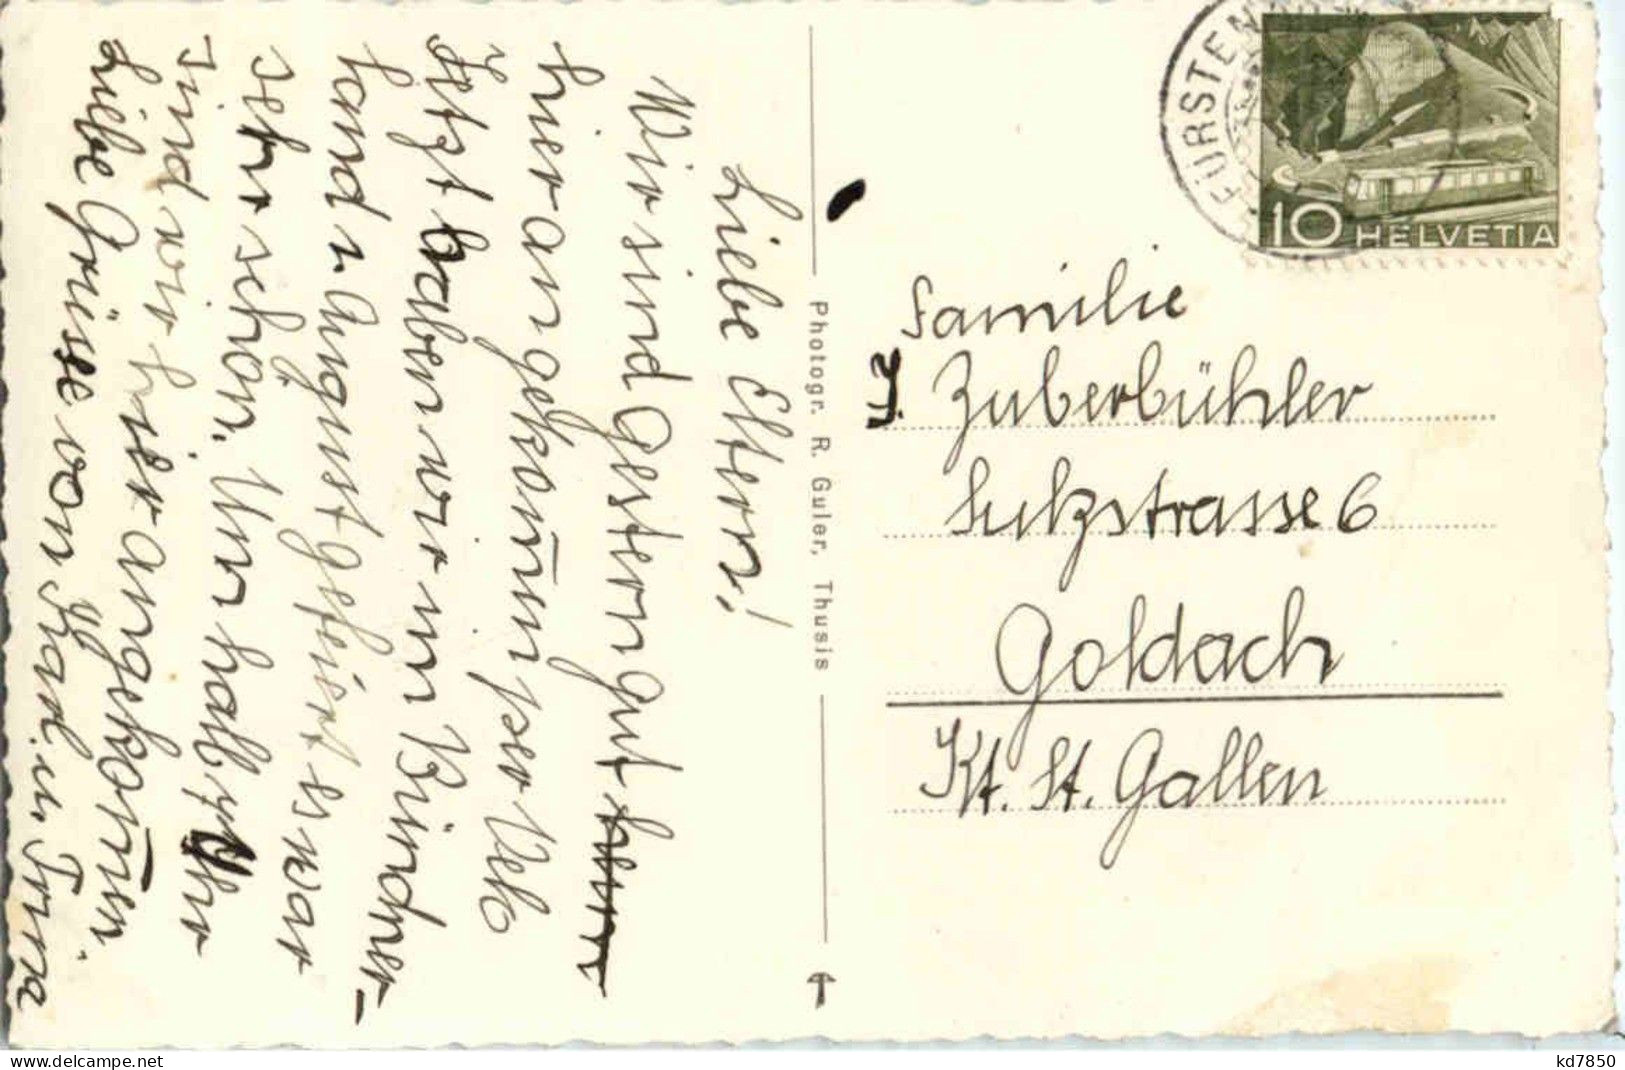 Liebe Eltern!
Wir sind Gestern gut
hier angekom̄en per Velo
Jetzt haben wir im Bündner-
land 1. August gefeiert es war
sehr schön. Um halb 7 Uhr
sind wir hier angekom̄en.
Liebe Grüsse von Karl u. Trina
Photogr. R. Guler, Thusis
FÜRSTEN
10 HELVETIA
Familie
J. Zuberbühler
Sulzstrasse 6
Goldach
Kt. St. Gallen
kd7850
https://www.delcampe.net